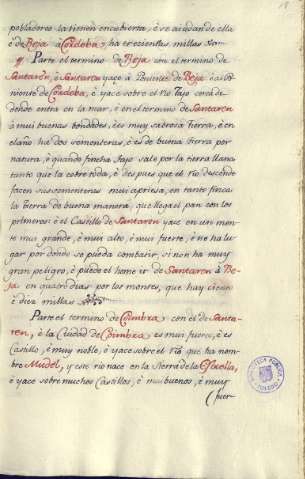 pobladores la tienen encobierta, è se ayudan de ella
è de Beja à Cordoba, ha trecientas millas
Parte el termino de Beja con el termino de
Santarèn, è Santaren yace à Poniente de Beja è al
Poniente de Cordoba, è yace sobre el Rio Tajo cerca de
donde entra en la mar, è en el termino de Santaren
à mui buenas bondades, è es muy sabrosa tierra, è en
el año ha dos sementeras, è es de buena tierra por
natura, è quando fincha Tajo sale por la tierra llana
tanto que la cobre toda, è des pues que el rio desciende
facen sus sementeras muy apriesa, en tanto finca
la tierra de buena manera, que llega el pan con los
primeros: è el Castillo de Santaren yace en un mon
te mui grande, è mui alto, è mui fuerte, è no ha lu
gar por donde se pueda combatir, si non ha muy
gran peligro, è puede el home ir de Santaren à Be
ja en quatro dias por los montes, que hay ciento
è diez millas
Parte el termino de Coimbra con el de Santa
ren, è la Ciudad de Coimbra es mui fuerte, è es
Castillo, è muy noble, è yace sobre el rio que ha nom
bre Mudel, y este rio nace en la Sierra de la Estrella,
è yace sobre muchos Castillos, è mui buenos, è muy
(fuer